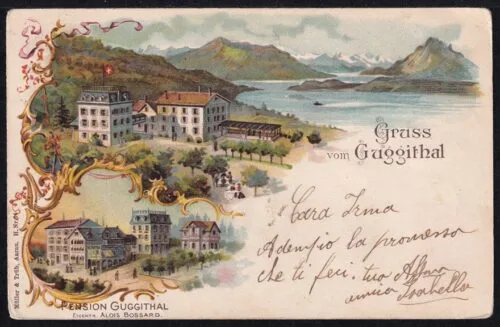 Gruss
vom Guggithal
Cara Irma
Adempio la promessa
che ti feci. tua
amica Isabella
PENSION GUGGITHAL
EIGENTH. ALOIS BOSSARD.
Müller & Trüb, Aarau.